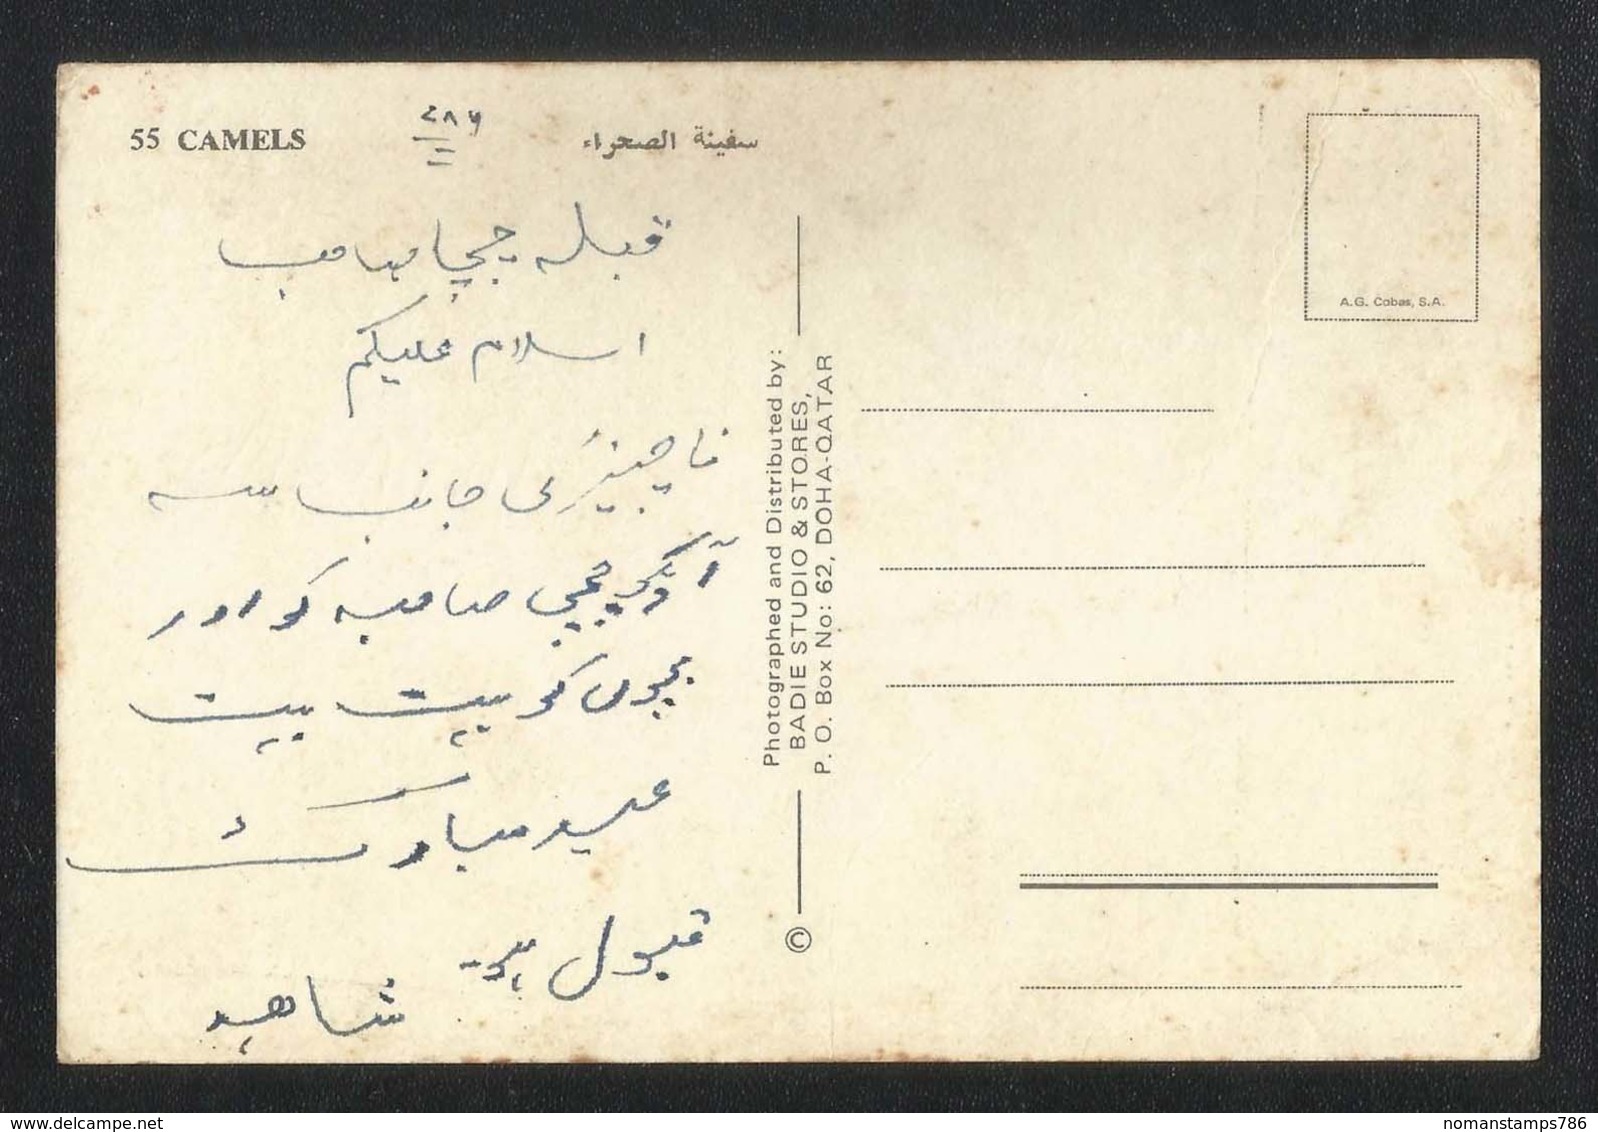 55 CAMELS
۷۸۶
سفينة الصحراء
قبلہ چچا صاحب
اسلام علیکم
ناچیز کی جانب سے
آپکو چچی صاحبہ کو اور
بچوں کو بہت بہت
عید مبارک
قبول ہو۔
شاہد
Photographed and Distributed by:
BADIE STUDIO & STORES,
P. O. Box No: 62, DOHA-QATAR
©
A.G. Cobas, S.A.
nomanstamps786